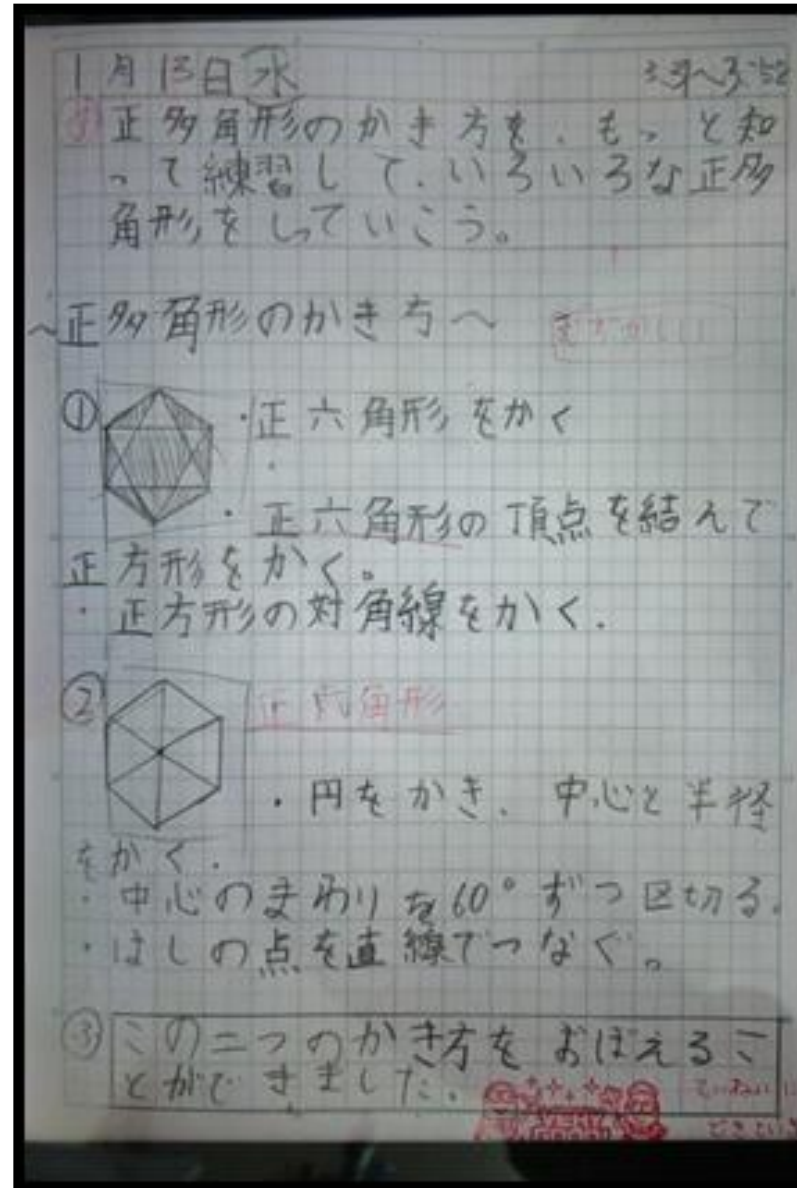 1月13日(水)
正多角形のかき方を、もっと知
って練習して、いろいろな正多
角形をしっていこう。
〜正多角形のかき方〜
むずかしい
① ・正六角形をかく
・
・正六角形の頂点を結んで
正方形をかく。
・正方形の対角線をかく.
② 正六角形
・円をかき、中心と半径
をかく.
・中心のまわりを60°ずつ区切る.
・はしの点を直線でつなぐ。
③ この二つのかき方をおぼえるこ
とができました.
ていねいに